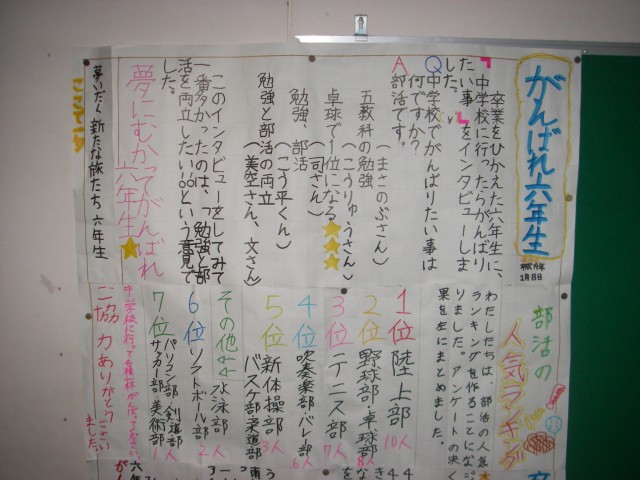 がんばれ六年生
平成19年
2月15日
卒業をひかえた六年生に、
「中学校に行ったらがんばり
たい事」をインタビューしま
した。
Q中学校でがんばりたい事は
何ですか?
A部活です。
(まさのぶさん)
五教科の勉強
(こうりゅうさん)
卓球で1位になる
(司さん)
勉強、部活
(こう平くん)
勉強と部活の両立
(美空さん、文さん)
このインタビューをしてみて
一番多かったのは、「勉強と部
活を両立したい」という意見で
した。
夢にむかってがんばれ
六年生
夢いだく 新たな旅たち 六年生
部活の
人気ランキング
わたしたちは、部活の人気
ランキングを作ることになぶ
りました。アンケートの決く
果を左にまとめました。
1位 陸上部 10人
2位 野球部・卓球部 8人
3位 テニス部 7人
4位 吹奏楽部・バレー部 6人
5位 新体操部 3人
バスケ部・柔道部
その他
水泳部
6位 ソフトボール部 2人
7位 パソコン部・剣道部
サッカー部・美術部 1人
ご協力ありがとうござい
ました。